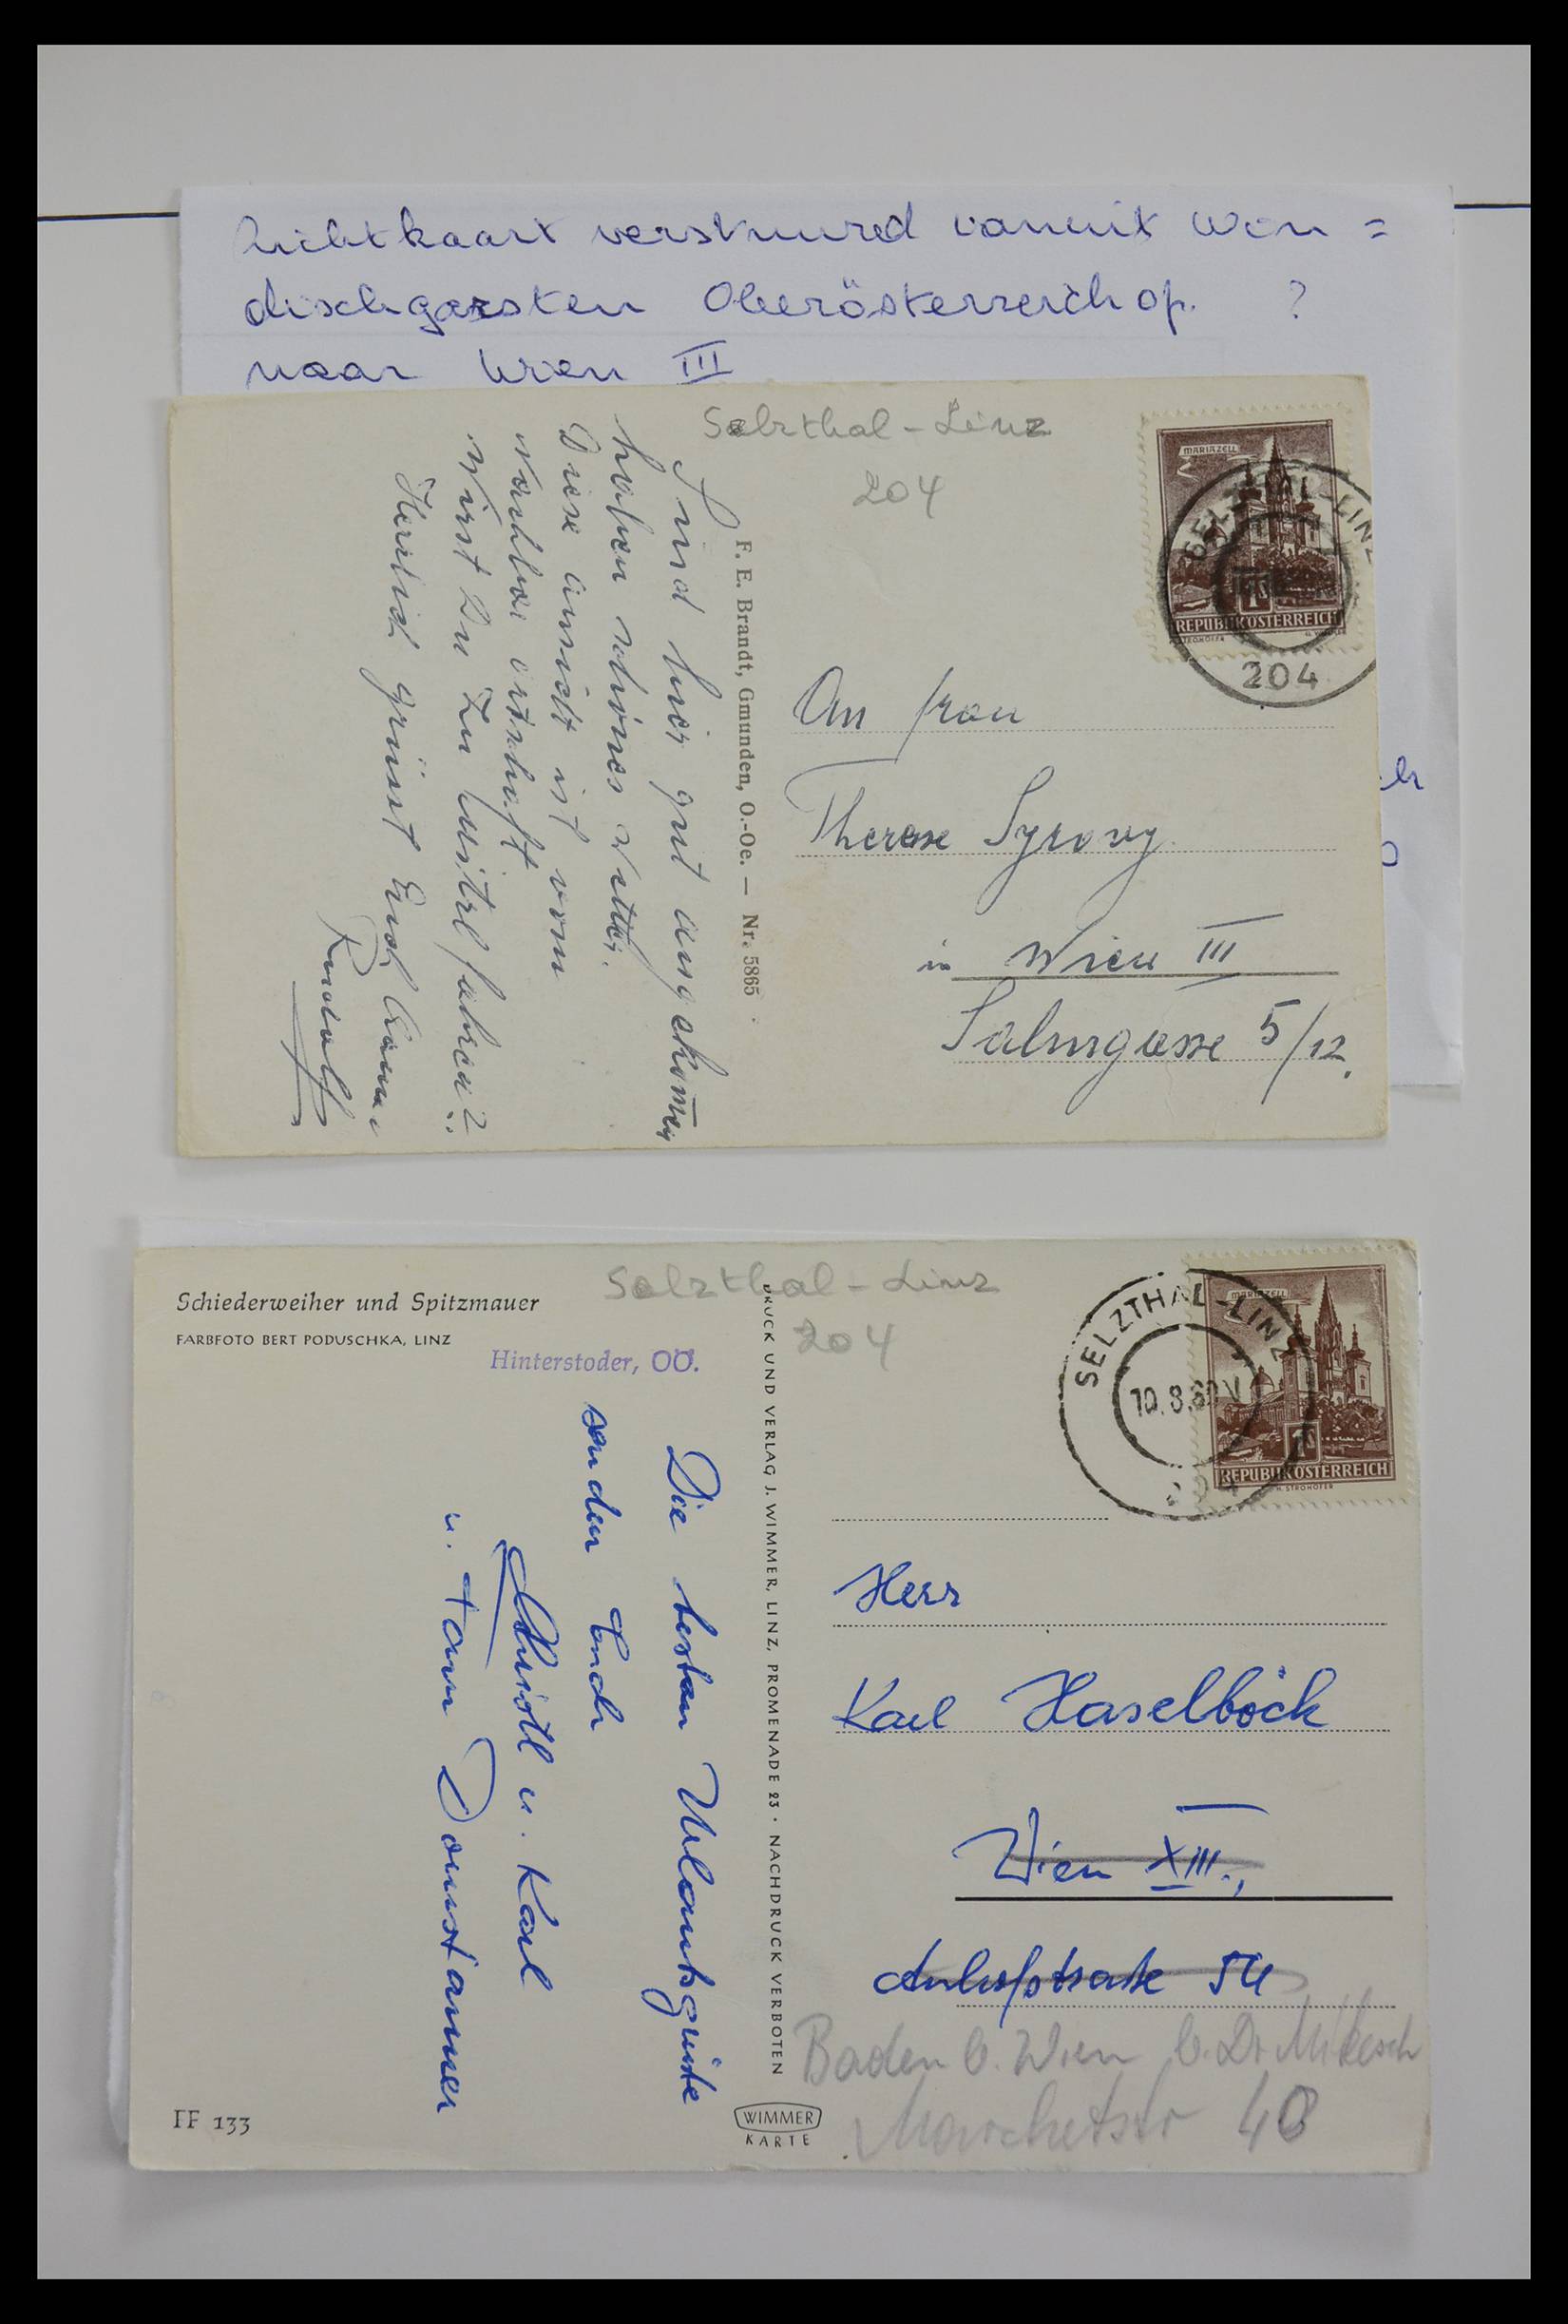 Zichtkaart verstuurd vanuit Win =
dischgarsten Oberösterreich op. ?
naar Wien III
Selzthal - Linz
204
MARIAZELL
SELZTHAL-LINZ
1S
REPUBLIK ÖSTERREICH
204
Sind hier gut angekom̄en
haben schönes Wetter.
Diese Ansicht ist vom
Nachbar ortschaft
Wirst Du zu Mitzl fahren?
Herzlich grüsst Euch
Rudolf
F. E. Brandt, Gmunden, O.-Oe. — Nr. 5865
An Frau
Therese Syrovy
in Wien III
Salmgasse 5/12.
Schiederweiher und Spitzmauer
FARBFOTO BERT PODUSCHKA, LINZ
Hinterstoder, OÖ.
Selzthal - Linz
204
SELZTHAL-LINZ
10.8.60 V
MARIAZELL
1S
REPUBLIK ÖSTERREICH
H. STROHOFER
Die besten Urlaubsgrüße
senden Euch
Christl u. Karl
u. Fam
DRUCK UND VERLAG J. WIMMER, LINZ, PROMENADE 23 · NACHDRUCK VERBOTEN
Herr
Karl Haselböck
Wien XIII.,
Auhofstraße 54
Baden b. Wien b. Dr. Mikesch
Marchetstr 48
IF 133
WIMMER
KARTE